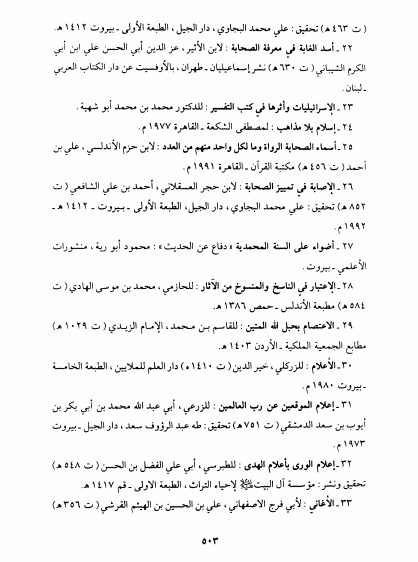 ( ت ٤٦٣ هـ) تحقيق : علي محمد البجاوي ، دار الجيل ، الطبعة الأولى ـ بيروت ١٤١٢ هـ .
٢٢ ـ أسد الغابة في معرفة الصحابة : لابن الأثير ، عز الدين أبي الحسن علي ابن أبي
الكرم الشيباني ( ت ٦٣٠ هـ) نشر إسماعيليان ـ طهران ، بالأوفسيت عن دار الكتاب العربي
ـ لبنان .
٢٣ ـ الإسرائيليات وأثرها في كتب التفسير : للدكتور محمد بن محمد أبو شهبة .
٢٤ ـ إسلام بلا مذاهب : لمصطفى الشكعة ـ القاهرة ١٩٧٧ م .
٢٥ ـ أسماء الصحابة الرواة وما لكل واحد منهم من العدد : لابن حزم الأندلسي ، علي بن
أحمد ( ت ٤٥٦ هـ) مكتبة القرآن ـ القاهرة ١٩٩١ م .
٢٦ ـ الإصابة في تمييز الصحابة : لابن حجر العسقلاني ، أحمد بن علي الشافعي ( ت
٨٥٢ هـ) تحقيق : علي محمد البجاوي ، دار الجيل ، الطبعة الأولى ـ بيروت ـ ١٤١٢ هـ ـ
١٩٩٢ م .
٢٧ ـ أضواء على السنة المحمدية «دفاع عن الحديث» : محمود أبو رية ، منشورات
الأعلمي ـ بيروت .
٢٨ ـ الإعتبار في الناسخ والمنسوخ من الآثار : للحازمي ، محمد بن موسى الهادي ( ت
٥٨٤ هـ) مطبعة الأندلس ـ حمص ١٣٨٦ هـ .
٢٩ ـ الاعتصام بحبل الله المتين : للقاسم بن محمد ، الإمام الزيدي ( ت ١٠٢٩ هـ)
مطابع الجمعية الملكية ـ الأردن ١٤٠٣ هـ .
٣٠ ـ الأعلام : للزركلي ، خير الدين ( ت ١٤١٠ هـ) دار العلم للملايين ، الطبعة الخامسة
ـ بيروت ١٩٨٠ م .
٣١ ـ إعلام الموقعين عن رب العالمين : للزرعي ، أبي عبد الله محمد بن أبي بكر بن
أيوب بن سعد الدمشقي ( ت ٧٥١ هـ) تحقيق : طه عبد الرؤوف سعد ، دار الجيل ـ بيروت
١٩٧٣ م .
٣٢ ـ إعلام الورى بأعلام الهدى : للطبرسي ، أبي علي الفضل بن الحسن ( ت ٥٤٨ هـ)
تحقيق ونشر : مؤسسة آل البيت لإحياء التراث ، الطبعة الاولى ـ قم ١٤١٧ هـ .
٣٣ ـ الأغاني : لأبي فرج الاصفهاني ، علي بن الحسين بن الهيثم القرشي ( ت ٣٥٦ هـ)
٥٠٣